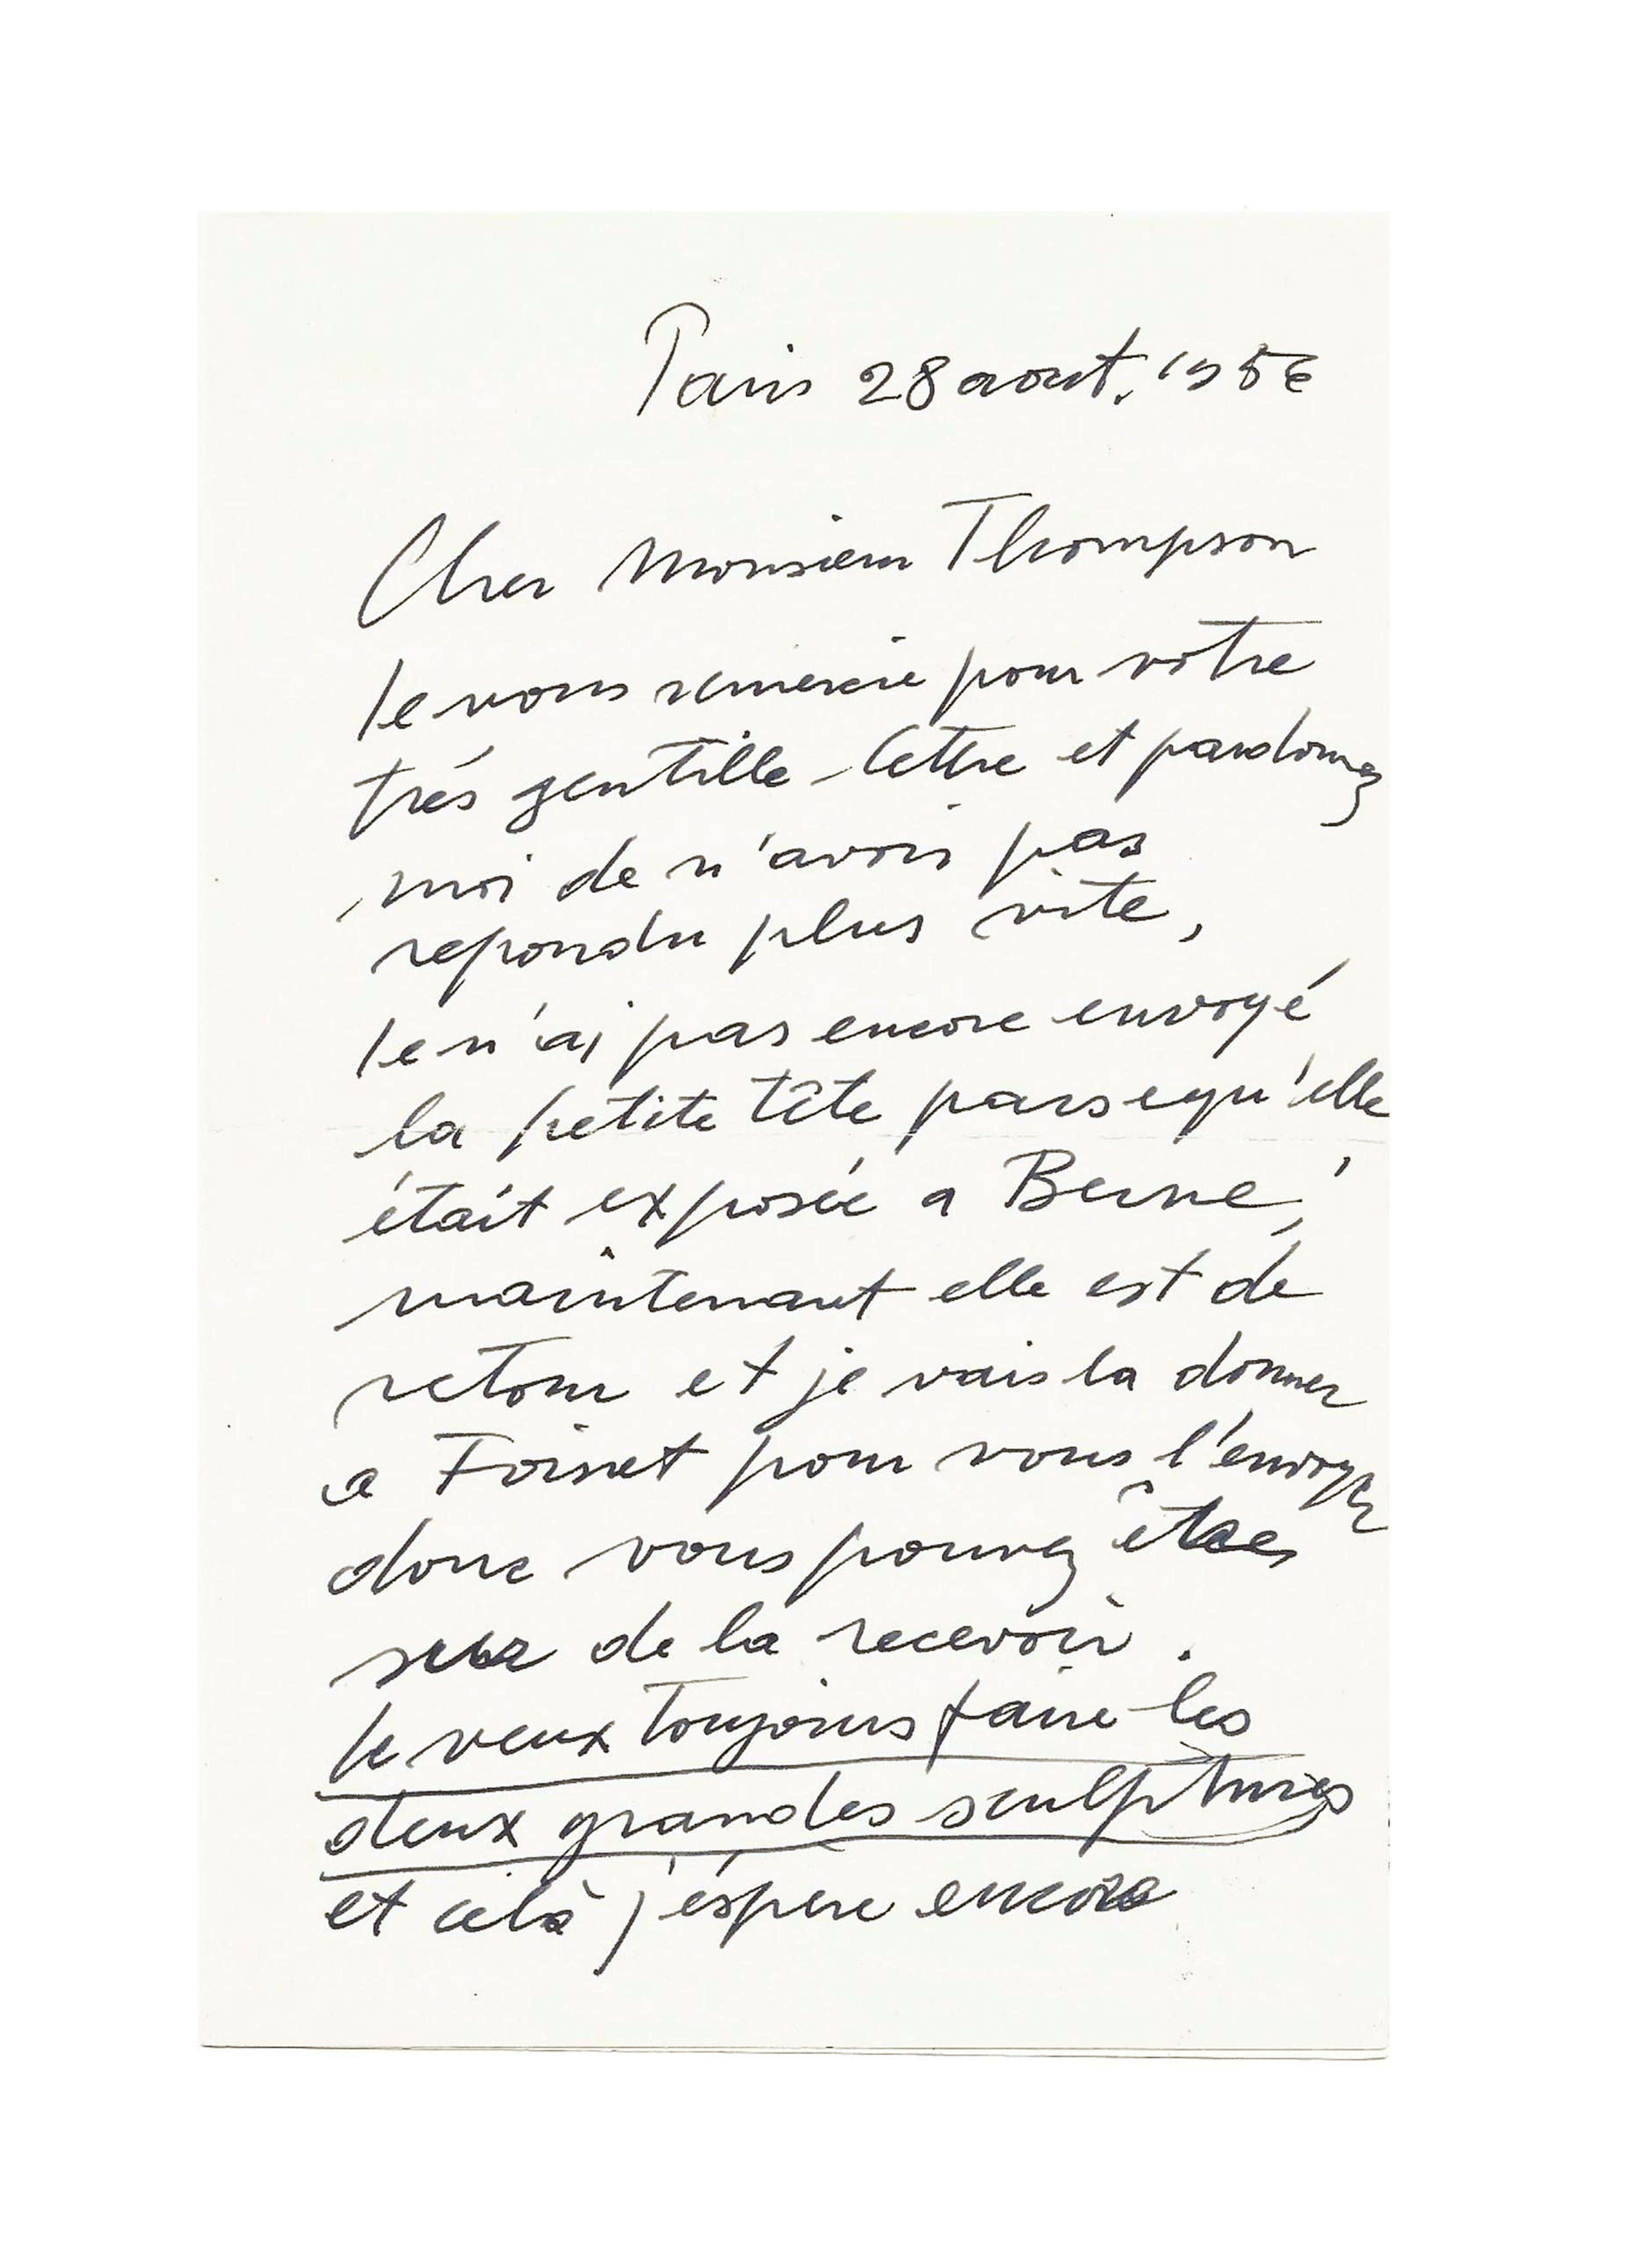 Paris 28 aout. 1956
Cher Monsieur Thompson
Je vous remercie pour vôtre
trés gentille lettre et pardonez
moi de n'avoir pas
repondu plus vite,
Je n'ai pas encore envoyé
la petite tête parsequ'elle
était exposée a Berne,
maintenant elle est de
retour et je vais la donner
a Foinet pour vous l'envoyer
donc vous pouvez être
sur de la recevoir.
Je veux toujours faire les
deux grandes sculptures
et celà j'éspère encore